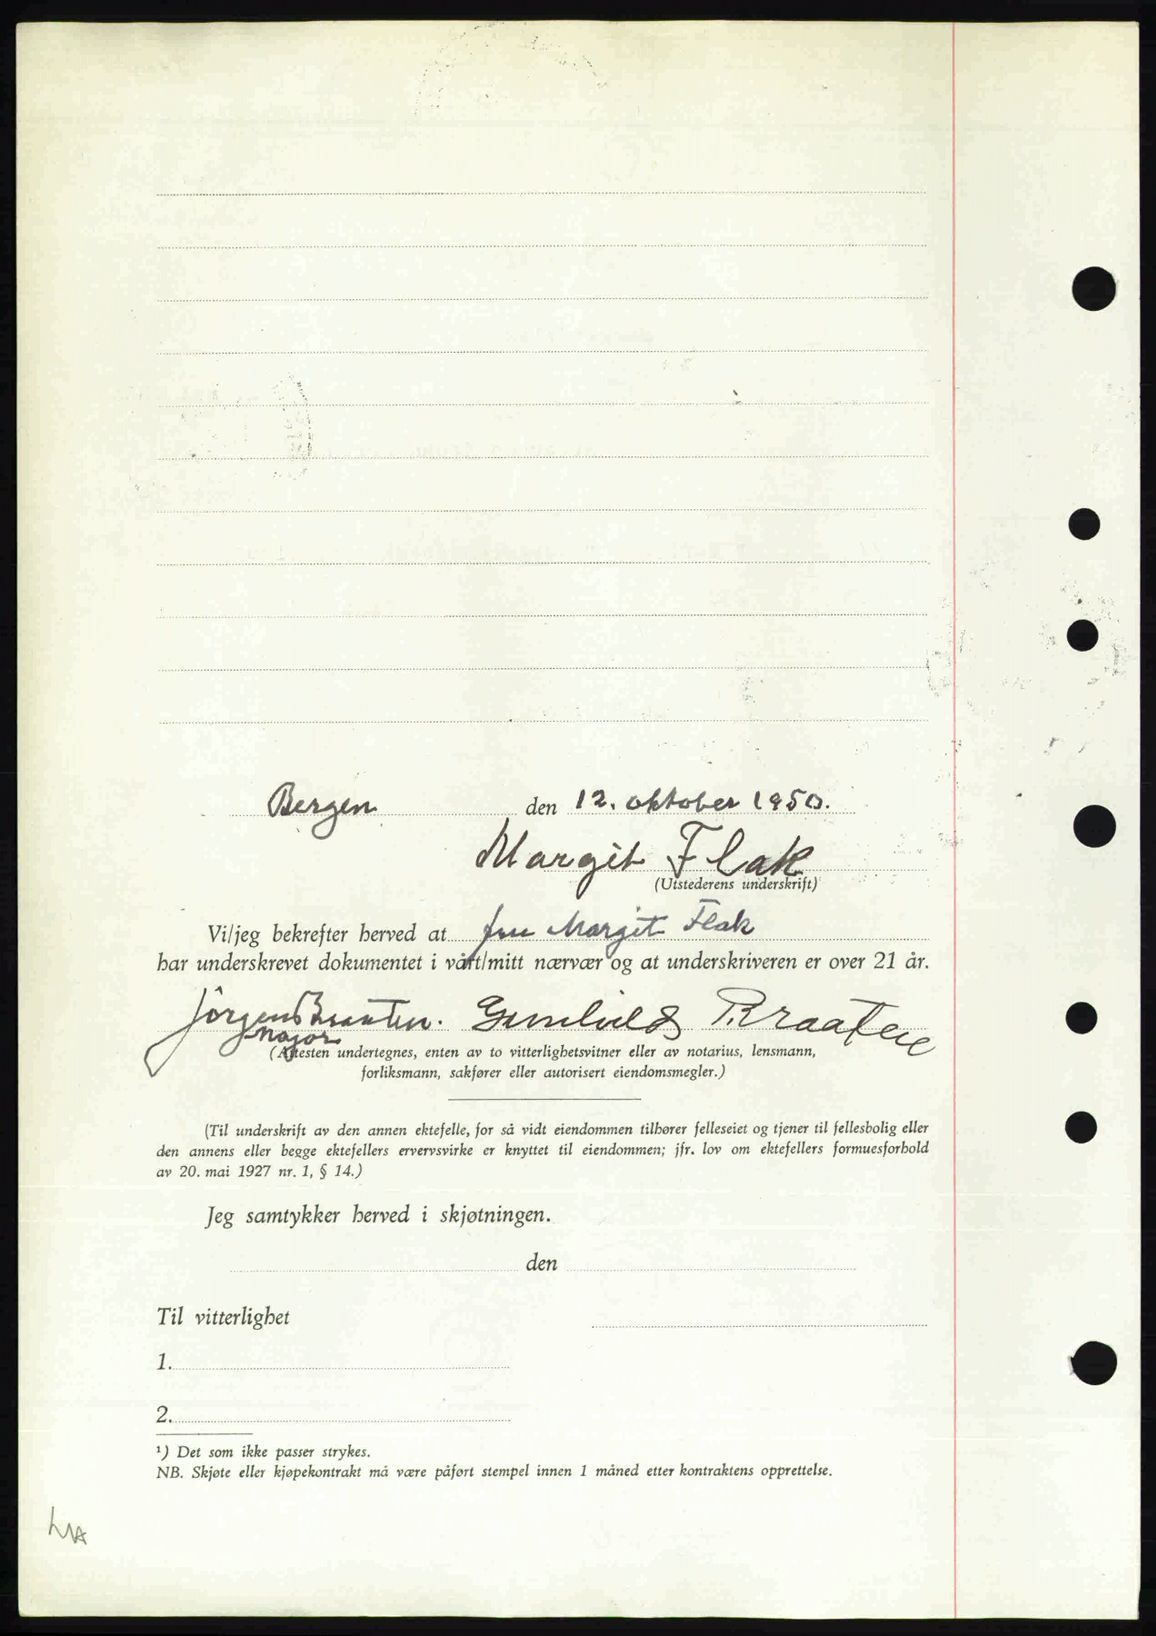 Bergen den 12. oktober 1950.
Margit Flak
(Utstederens underskrift)
Vi/jeg bekrefter herved at fru Margit Flak
har underskrevet dokumentet i vårt/mitt nærvær og at underskriveren er over 21 år.
Jörgen Braaten. Gunhild Braaten
Major
(Attesten undertegnes, enten av to vitterlighetsvitner eller av notarius, lensmann,
forliksmann, sakfører eller autorisert eiendomsmegler.)
(Til underskrift av den annen ektefelle, for så vidt eiendommen tilhører felleseiet og tjener til fellesbolig eller
den annens eller begge ektefellers ervervsvirke er knyttet til eiendommen; jfr. lov om ektefellers formuesforhold
av 20. mai 1927 nr. 1, § 14.)
Jeg samtykker herved i skjøtningen.
den
Til vitterlighet
1.
2.
¹) Det som ikke passer strykes.
NB. Skjøte eller kjøpekontrakt må være påført stempel innen 1 måned etter kontraktens opprettelse.